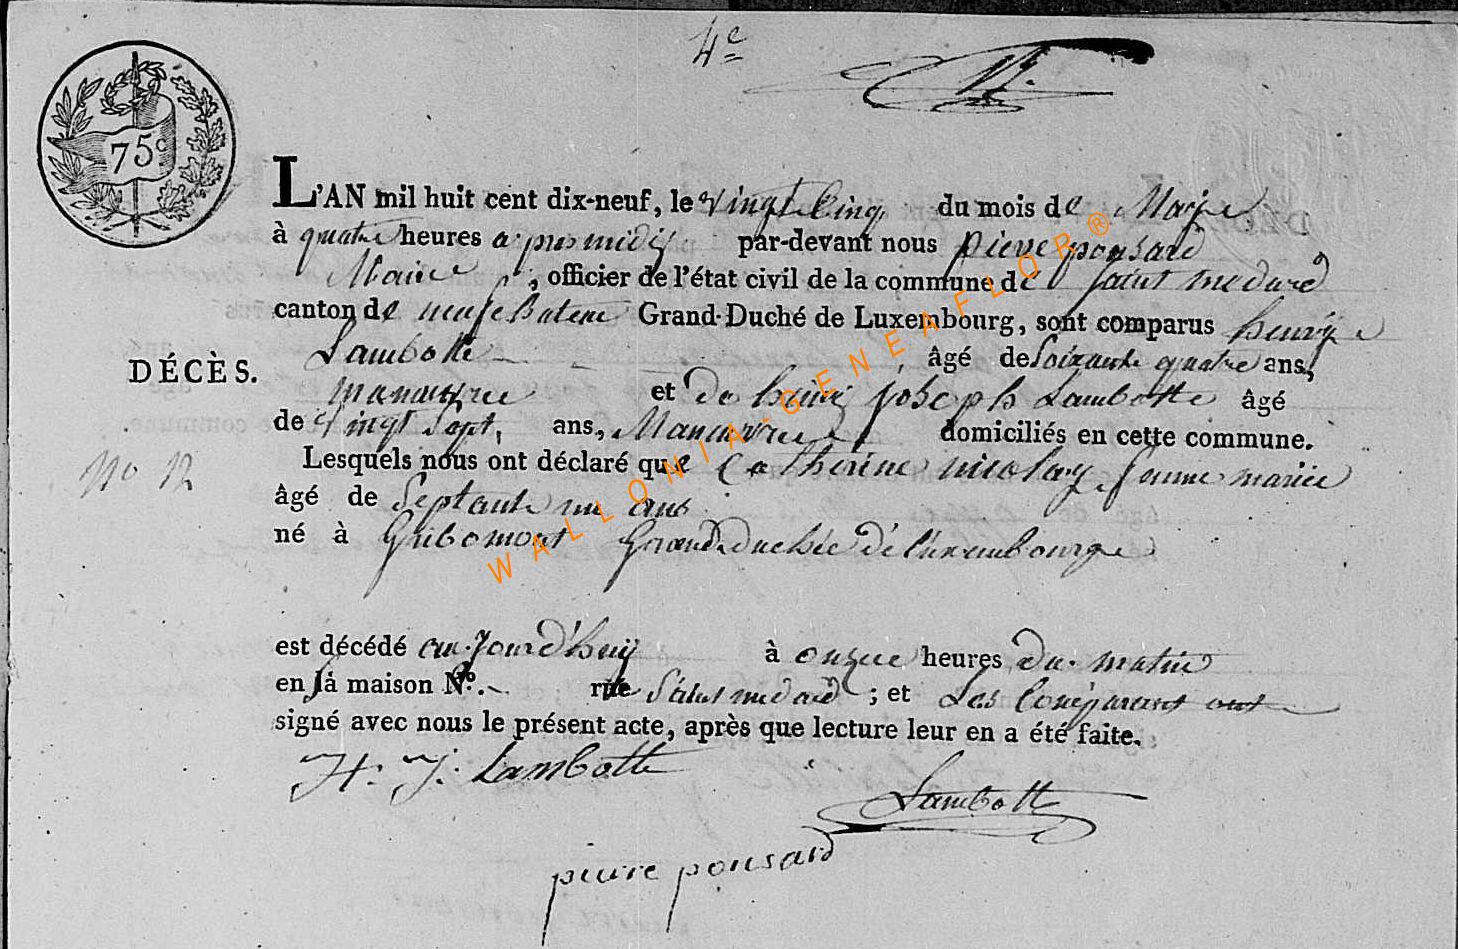 4e
75c
L'AN mil huit cent dix-neuf, le vingt Cinq du mois de
à quatre heures apres midij par-devant nous pierre ponsard
Maire, officier de l'état civil de la commune de saint medard
canton de neufchateau Grand-Duché de Luxembourg, sont comparus henrÿ
Lambotte âgé de Soixante quatre ans,
DÉCÈS.
manœuvre et de henri joseph Lambotte âgé
de vingt Sept, ans, Manœuvre domiciliés en cette commune.
No 12
Lesquels nous ont déclaré que Catherine nicolay femme mariée
âgé de Septante un ans
né à Gribomont Grand duchée de luxembourge
est décédé au jourd'huÿ à onze heures du matin
en sa maison No. rue Saint medard ; et Les Comparant ont
signé avec nous le présent acte, après que lecture leur en a été faite.
H. J. Lambotte
Lambotte
pierre ponsard
WALLONIA-GENEAFLOR®